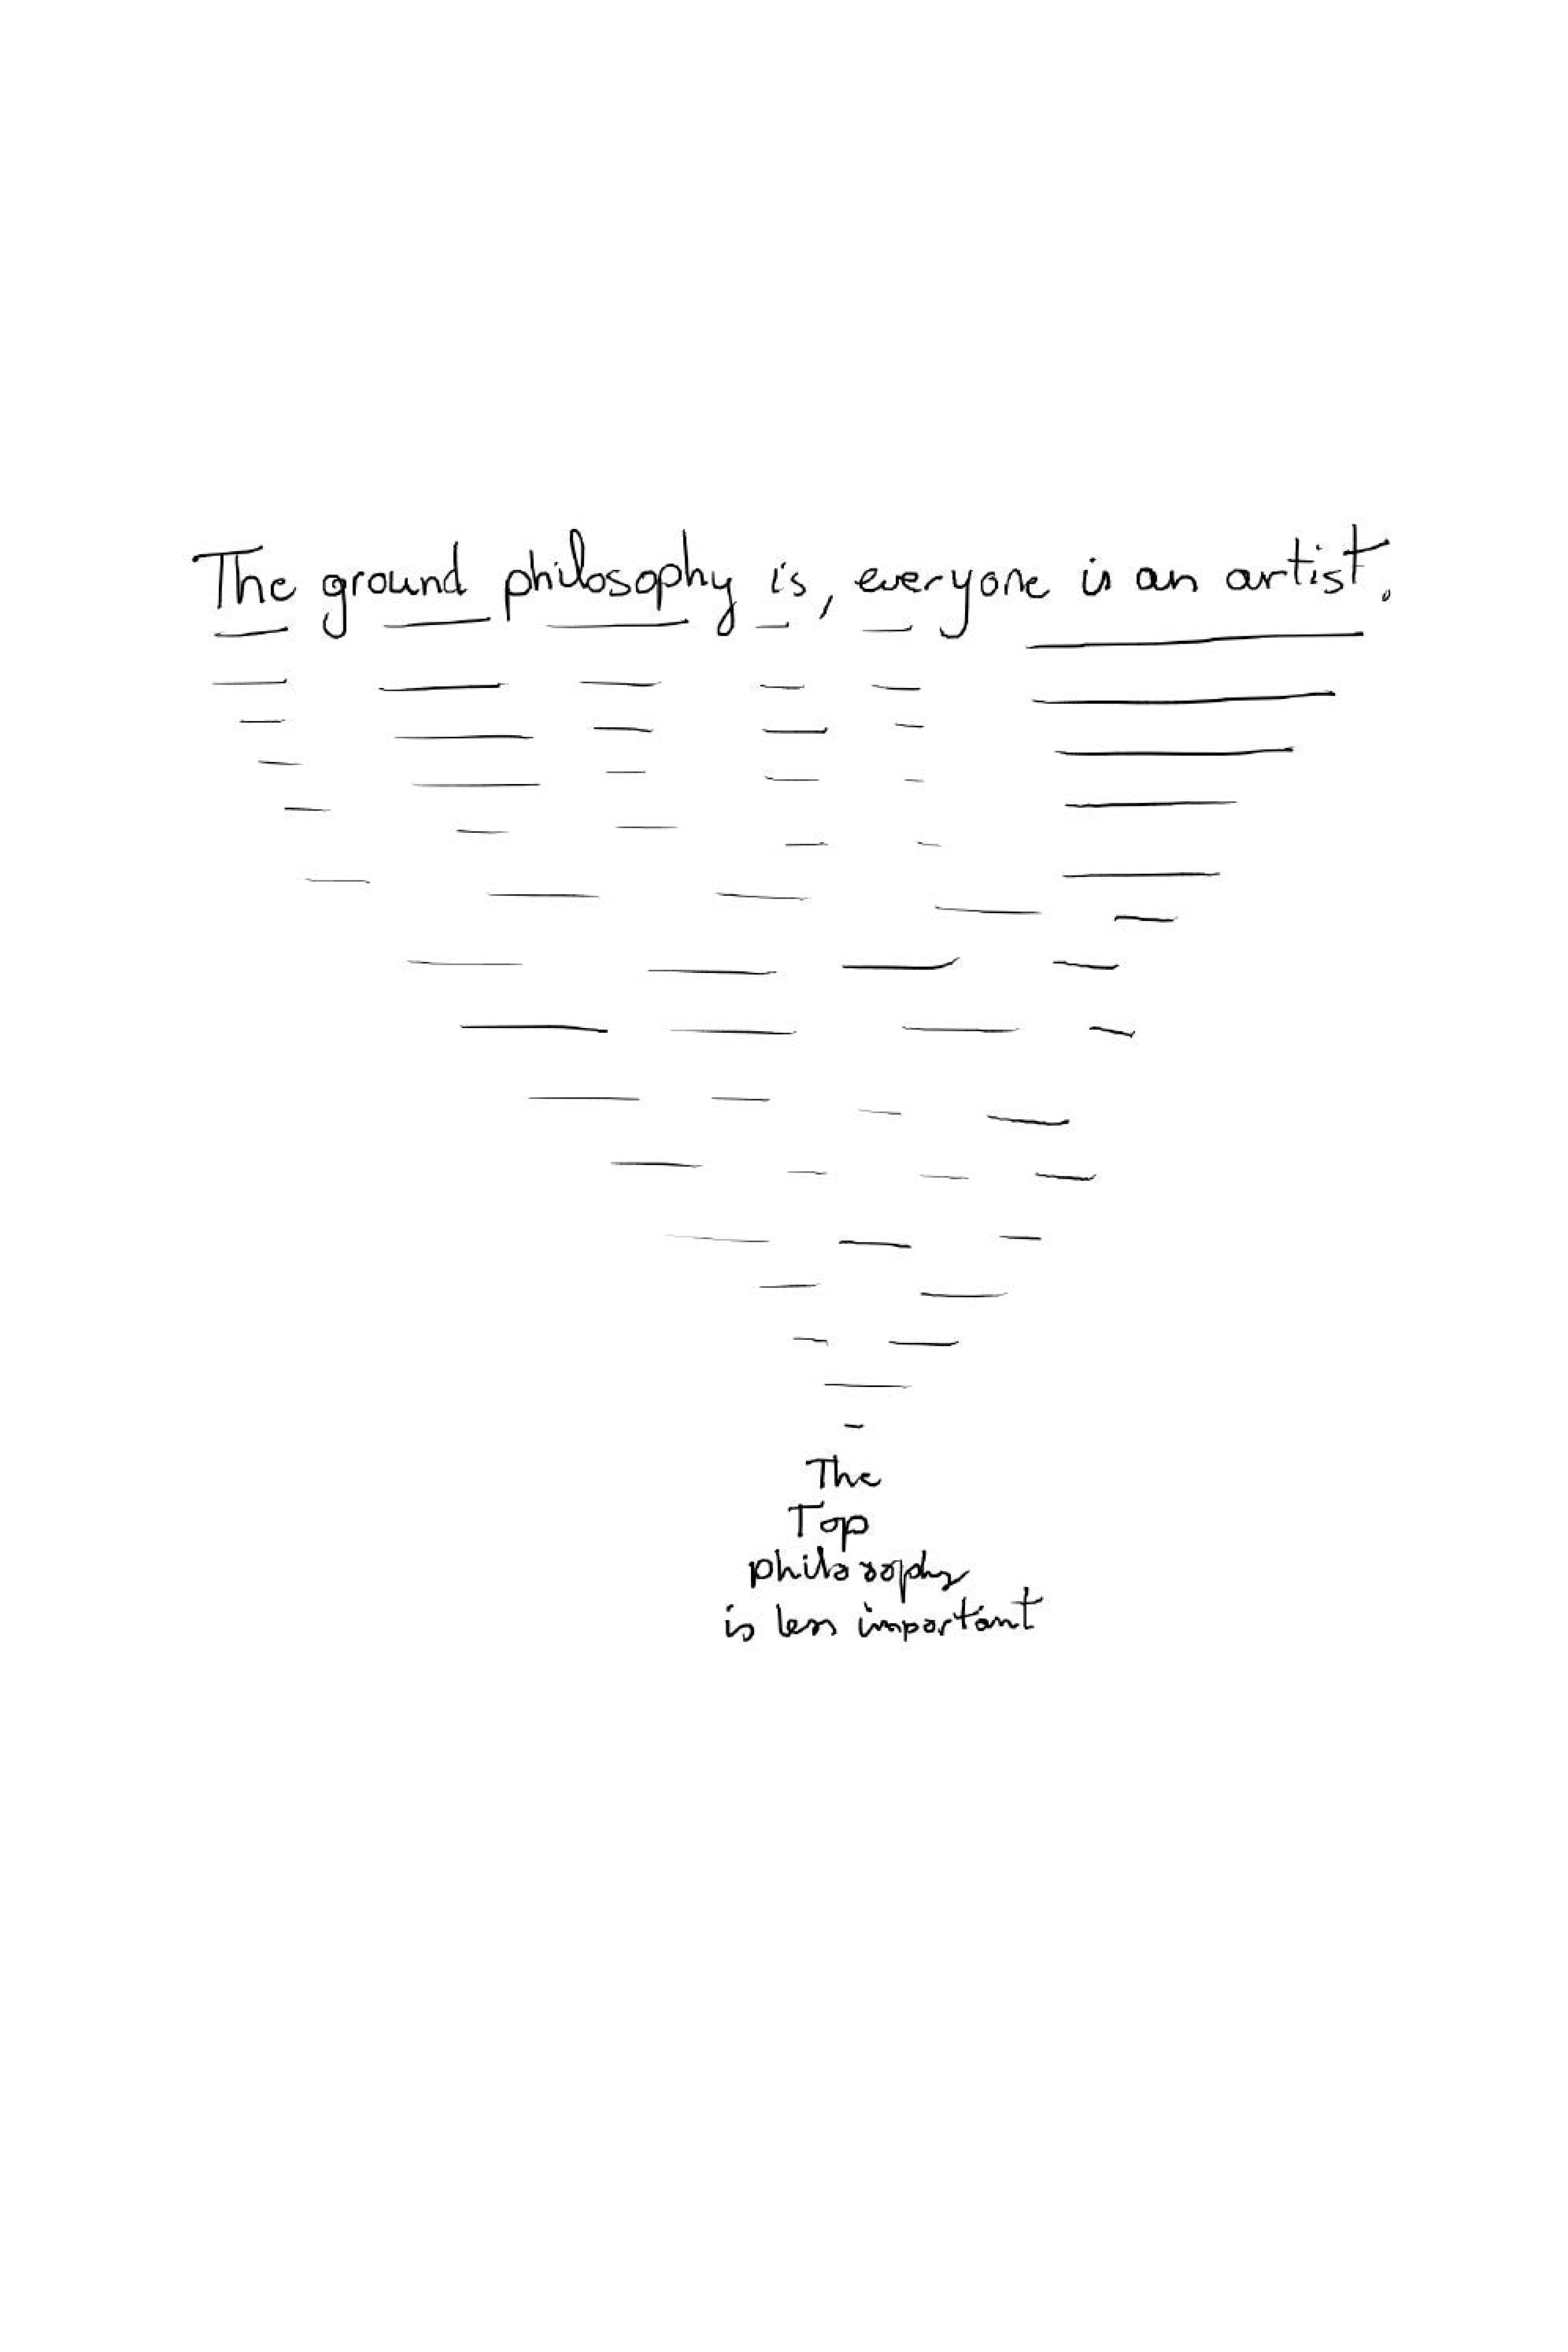 The ground philosophy is, everyone is an artist.
The
Top
philosophy
is less important